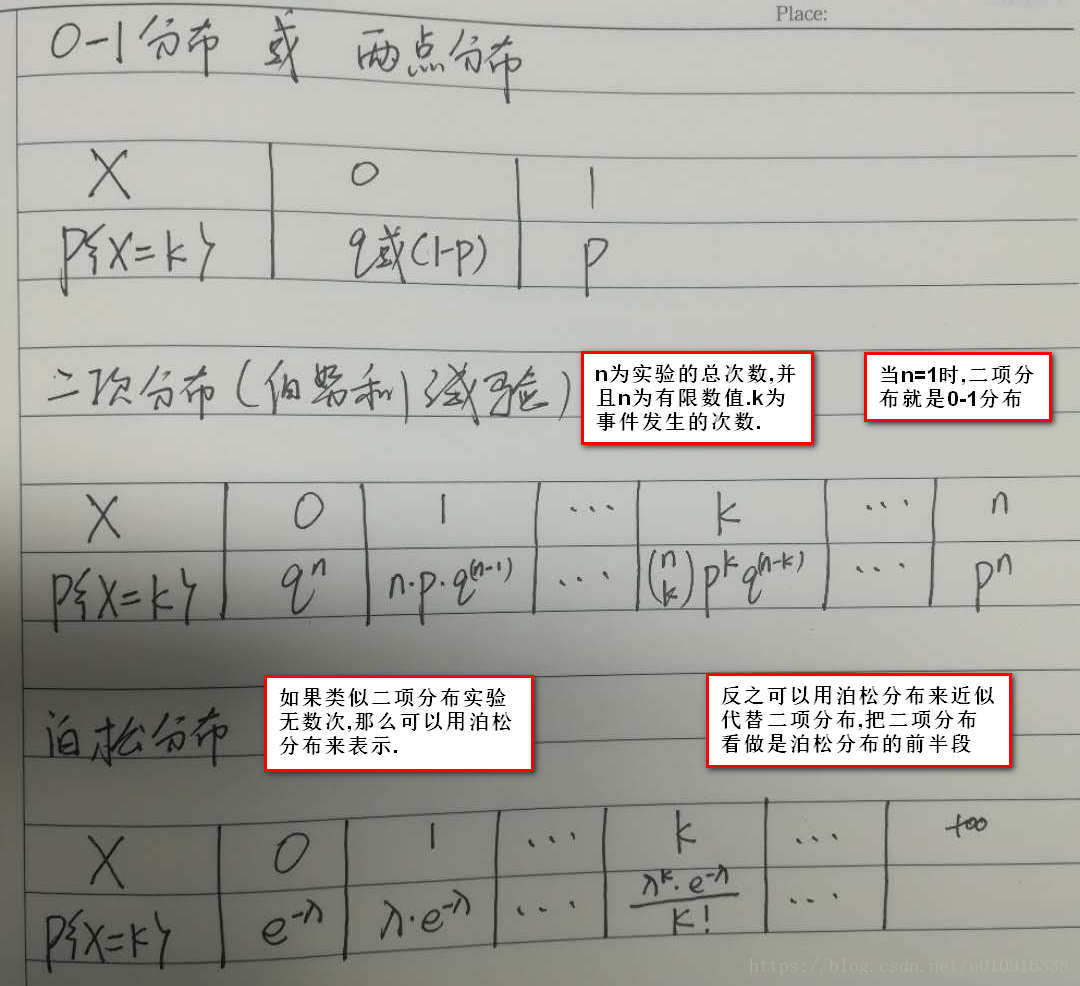 Place:
0-1分布 或 两点分布
X 0 1
P{X=k} q或(1-p) p
二次分布(伯努利试验)
n为实验的总次数,并
且n为有限数值.k为
事件发生的次数.
当n=1时,二项分
布就是0-1分布
X 0 1 ... k ... n
P{X=k} qⁿ n·p·q⁽ⁿ⁻¹⁾ ... (n k) pᵏ q⁽ⁿ⁻ᵏ⁾ ... pⁿ
泊松分布
如果类似二项分布实验
无数次,那么可以用泊松
分布来表示.
反之可以用泊松分布来近似
代替二项分布,把二项分布
看做是泊松分布的前半段
X 0 1 ... k ... +∞
P{X=k} e^-λ λ·e^-λ ... λ^k·e^-λ / k! ...